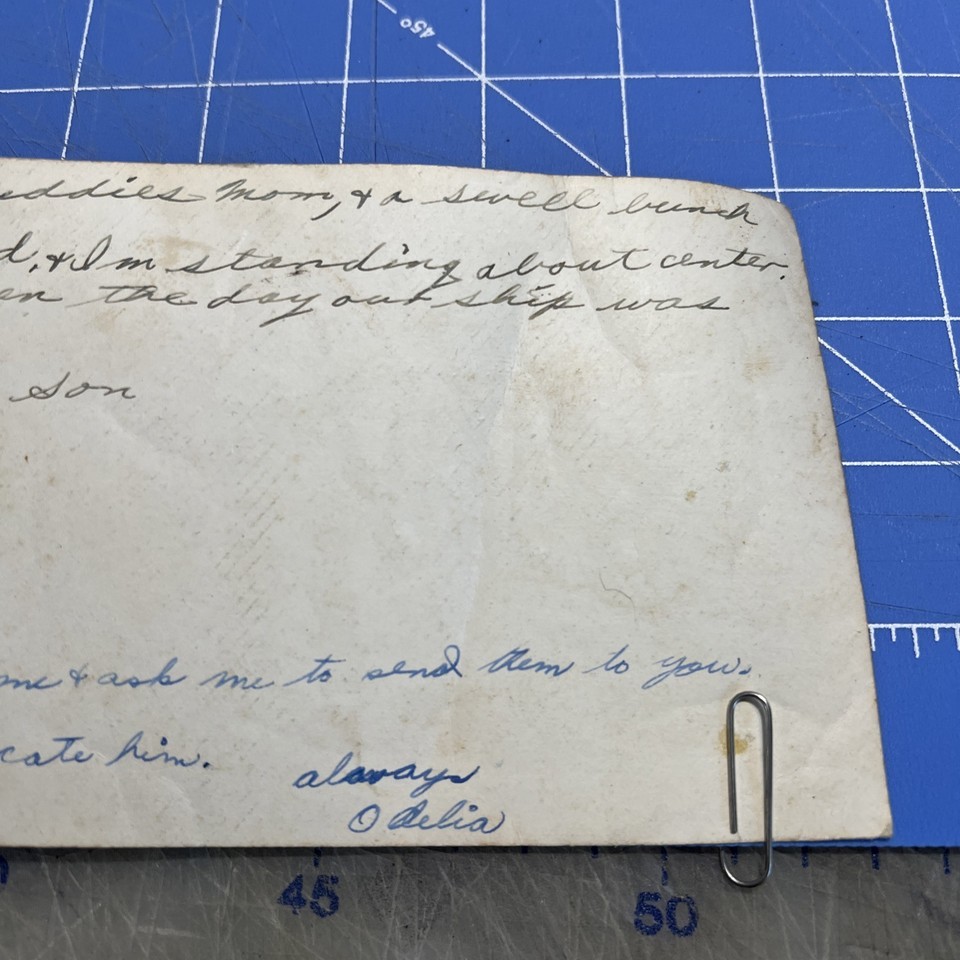 45°
eddies Mom, & a swell bunch
d, & Im standing about center.
en the day our ship was
son
me & ask me to send them to you.
cate him.
always
Odelia
45
50